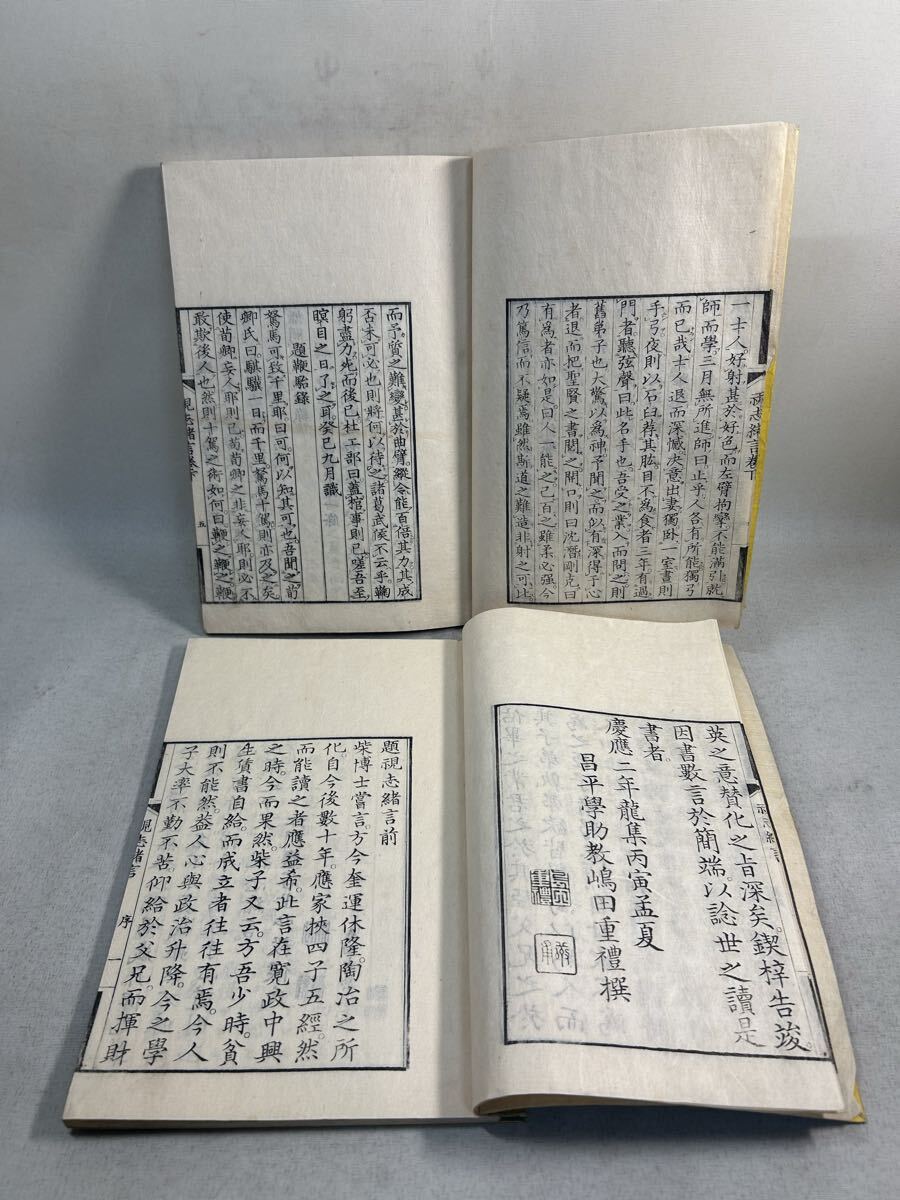 一士人。好射甚於好色。而左臂拘攣。不能滿引。就
師而學。三月無所進。師曰止乎。人各有所能。獨弓
而已哉。士人退而深憾。決意出妻獨臥一室。晝則
手弓。夜則以石臼荐其肱。目不爲食者三年。有過
門者。聽弦聲曰。此名手也。吾受之業。入而問之。則
舊弟子也。大驚以爲神。予聞之。而以有深得于心
者。退而把聖賢之書閱之。開口。則曰沈潛剛克。曰
有爲者亦如是。曰人一能之。己百之。雖柔必強。今
乃篤信而不疑焉。雖然斯道之難造。非射之可比。
視志緒言卷下
而予質之難變。甚於曲臂。縱令能百倍其力。其成
否未可必也。則將何以待之。諸葛武侯不云乎。鞠
躬盡力。死而後已。杜工部曰。蓋棺事則已。嗟吾至
瞑目之日。了之耳。癸巳九月識
題鞭駘錄
駑馬可致千里耶。曰可。何以知其可也。吾聞之。荀
卿氏曰。騏驥一日而千里。駑馬十駕。則亦及之矣。
使荀卿妄人耶則已。荀卿之非妄人耶。則必不
最欺後人也。然則十駕之術如何。曰鞭之。鞭之鞭
視志緒言卷下
五
英之意。贊化之旨深矣。鍥梓告竣。
因書數言於簡端。以諗世之讀是
書者。
慶應二年龍集丙寅孟夏
昌平學助教嶋田重禮撰
視志緒言
題視志緒言前
柴博士嘗言。方今奎運休隆。陶冶之所
化。自今後數十年。應家挾四子五經。然
而能讀之者應益希。此言在寬政中興
之時。今而果然。柴子又云。方吾少時。貧
生賃書自給。而成立者往往有焉。今人
則不能然。益人心與政治升降。今之學
子大率不勤不苦。仰給於父兄。而揮財
視志緒言
序
一